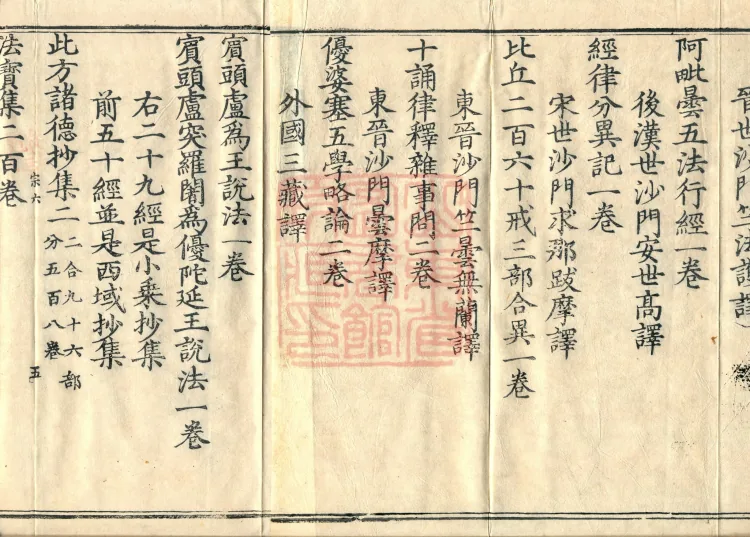 晉世沙門竺法護譯
阿毗曇五法行經一卷
後漢世沙門安世高譯
經律分異記一卷
宋世沙門求那跋摩譯
比丘二百六十戒三部合異一卷
東晉沙門竺曇無蘭譯
十誦律釋雜事問二卷
東晉沙門曇摩譯
優婆塞五學略論二卷
外國三藏譯
賓頭盧為王說法一卷
賓頭盧突羅闍為優陀延王說法一卷
右二十九經是小乘抄集
前五十經並是西域抄集
此方諸德抄集二
二合九十六部
分五百八卷
五
宗六
法寶集二百卷